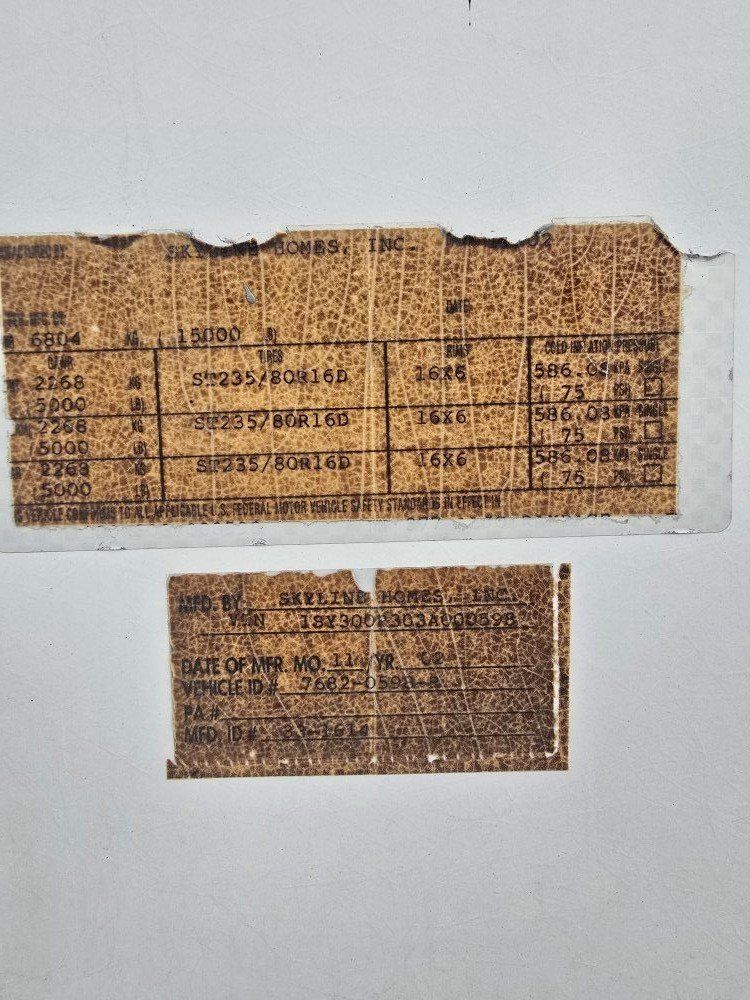 SKYLINE HOMES, INC. 02
DATE:
6804 KG. ( 15000 LB)
GAWR TIRES RIMS COLD INFLATION PRESSURE
2268 KG ST235/80R16D 16X6 586.08 KPA SINGLE
( 5000 LB) ( 75 PSI)
2268 KG ST235/80R16D 16X6 586.08 KPA SINGLE
( 5000 LB) ( 75 PSI)
2268 KG ST235/80R16D 16X6 586.08 KPA SINGLE
( 5000 LB) ( 75 PSI)
VEHICLE CONFORMS TO ALL APPLICABLE U.S. FEDERAL MOTOR VEHICLE SAFETY STANDARDS IN EFFECT ON
MFD. BY SKYLINE HOMES, INC.
VIN
DATE OF MFR. MO. 11 /YR. 02
VEHICLE ID # 7682-0598-R
PA #
MFD. ID #